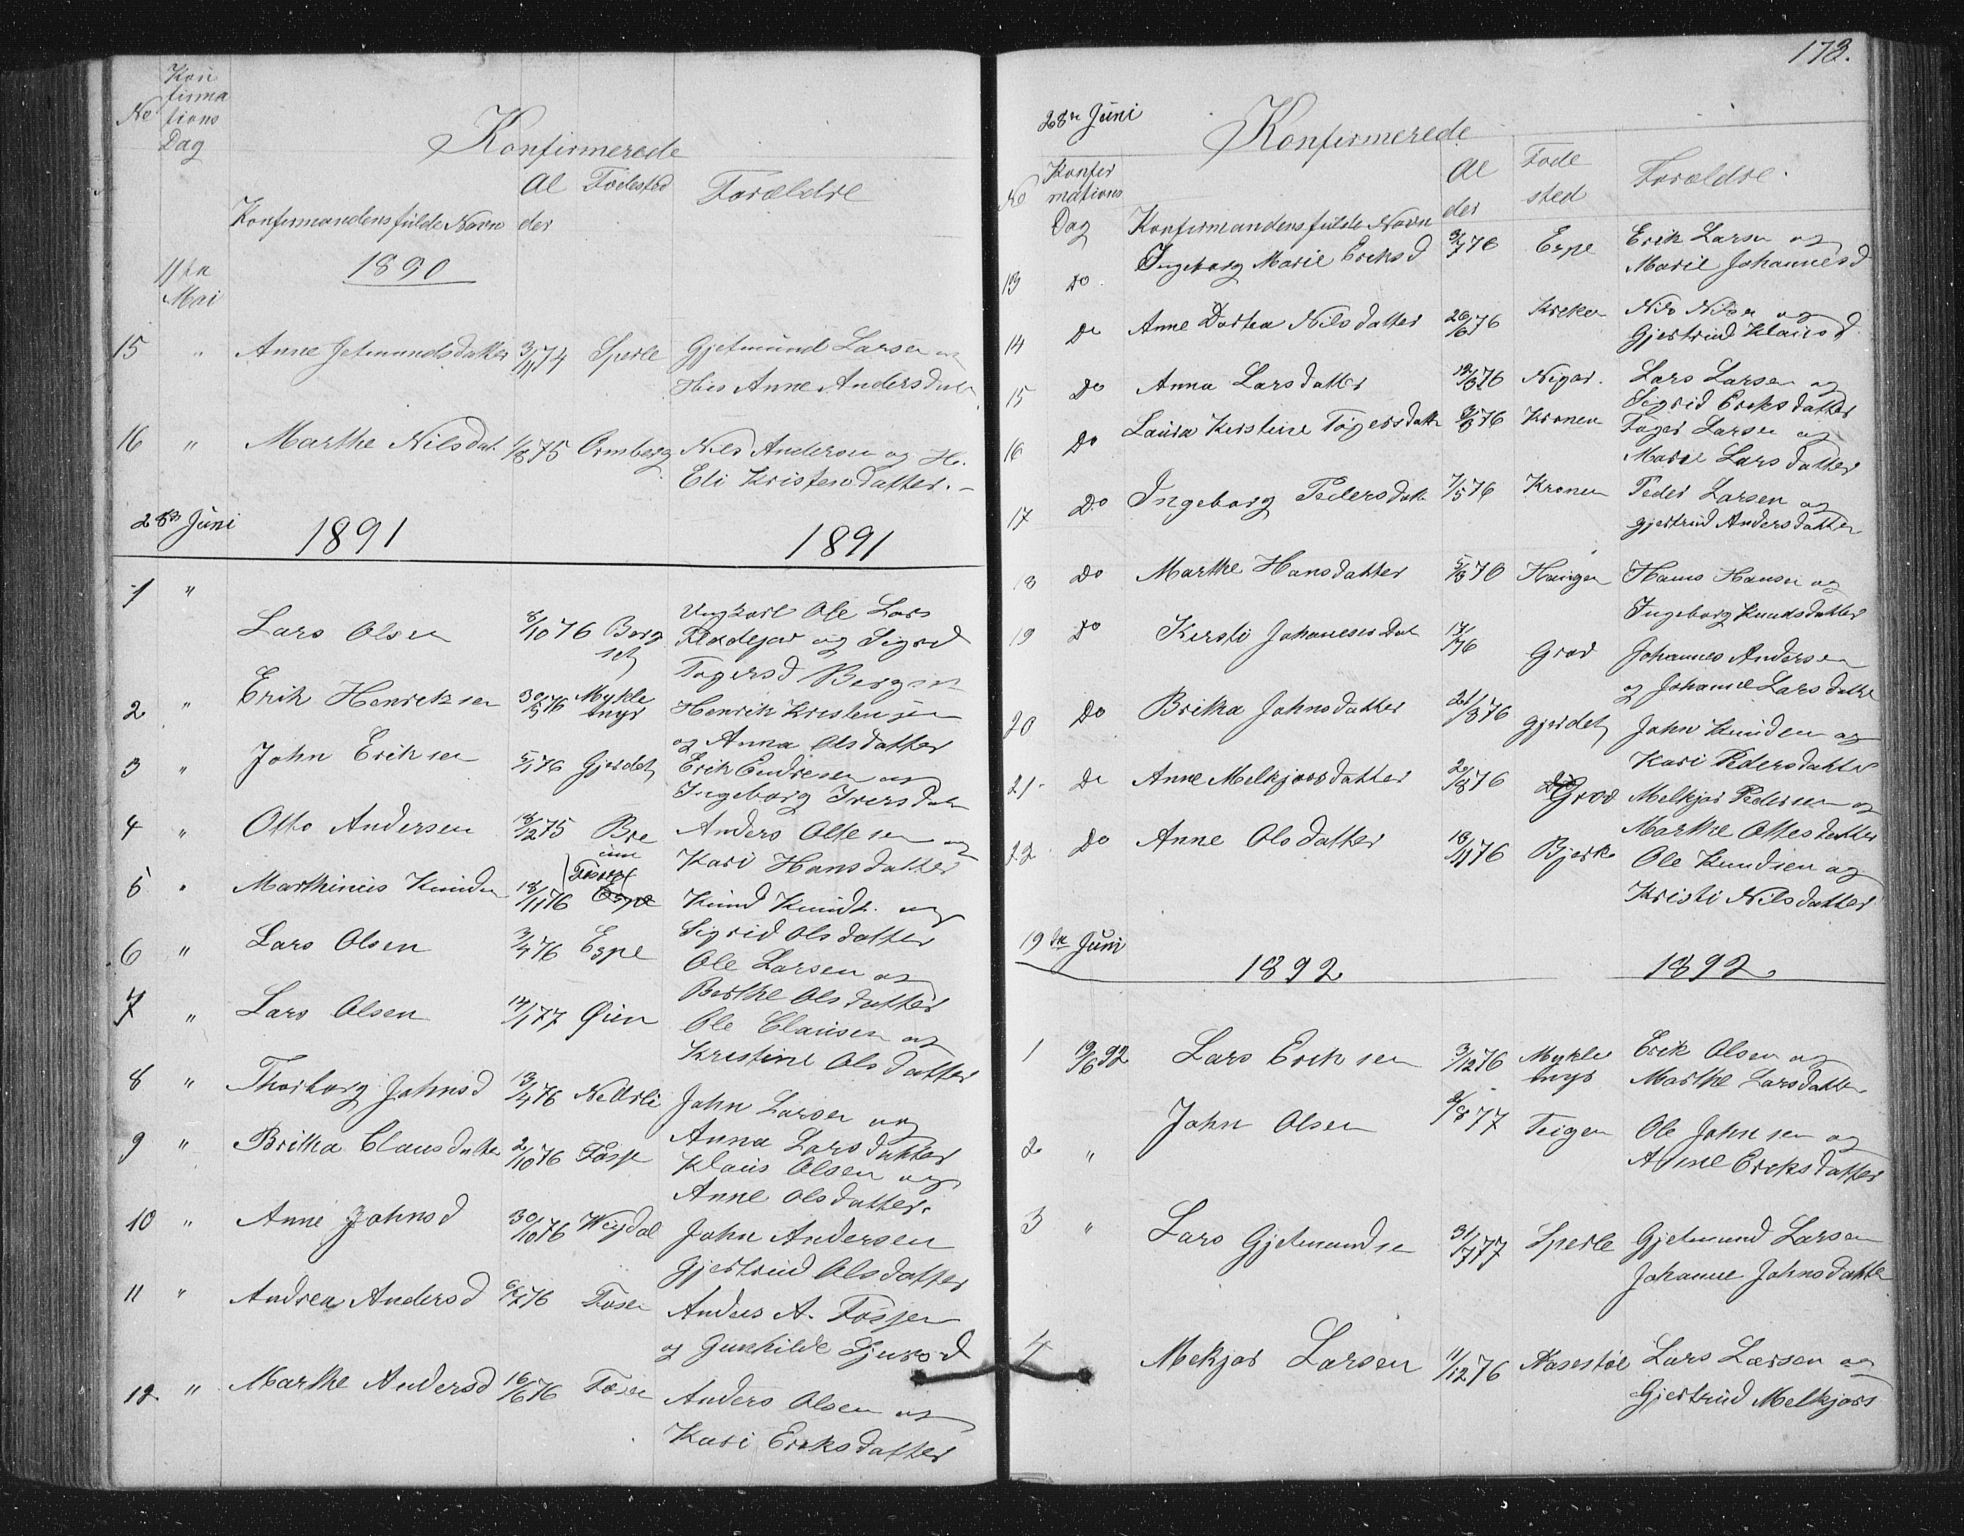 No
Kon
firma
tions
Dag
Konfirmerede
Konfirmandens fulde Navn
Al
der
Fødested
Forældre
11te
Mai
1890
15 " Anne Jetmundsdatter 3/11 74 Sperle Gjetmund Larsen og
Anne Andersdat
16 " Marthe Nilsdat. 1/8 75 Ormberg Nils Andersen og H.
Eli Kristensdatter. -
28de Juni
1891
1891
1 " Lars Olsen 8/10 76 Berg
set
Ungkarl Ole Lars
og Sigrid
Togersd Bergset
2 " Erik Henriksen 30/5 76 Mykle
myr
Henrik Kristensen
og Anna Olsdatter
3 " John Eriksen 5/1 76 Gjerdet Erik Endresen og
Ingeborg Iversdat
4 " Otto Andersen 18/12 75 Bre
um
Anders Ottesen og
Kari Hansdatter
5 " Marthinus Knudsen 18/11 76 Knud Knuds. og
Sigrid Olsdatter
6 " Lars Olsen 3/4 76 Espe Ole Larsen og
Berthe Olsdatter
7 " Lars Olsen 14/1 77 Øien Ole Clausen og
Kristine Olsdatter
8 " Thorborg Johnsd 13/4 76 Nedrli John Larsen og
Anna Larsdatter
9 " Britha Clausdatter 2/10 76 Klaus Olsen og
Anne Olsdatter.
10 " Anne Johnsd 30/10 76 John Andersen
Gjertrud Olsdatter
11 " Andrea Andersd 6/7 76 Anders A. Fosse
og Gunhilde Sjursd
12 " Marthe Andersd 16/6 76 Anders Olsen og
Kari Eriksdatter
173.
28de Juni
Konfirmerede
No
Konfir
mations
Dag
Konfirmandens fulde Navn
Al
der
Føde
sted
Forældre.
13 Do Ingeborg Marie Eriksd 3/7 76 Espe Erik Larsen og
Marie Johannesd
14 Do Anne Dortea Nilsdatter 26/6 76 Kreken Nils Nilsen og
Gjertrud Klausd
15 Do Anna Larsdatter 12/6 76 Lars Larsen og
Sigrid Eriksdatter
16 Do Laura Kirstine Togersdatt 9/8 76 Kronen Toger Larsen og
Marie Larsdatter
17 Do Ingeborg Pedersdat 7/5 76 Kronen Peder Larsen og
Gjertrud Andersdatter
18 Do Marthe Hansdatter 5/8 76 Haugen Hans Hansen og
Ingeborg Knudsdatter
19 Do Kersti Johannesdat 76 Grov Johannes Andersen
og Johanne Larsdatter
20 Do Britha Johnsdatter 21/8 76 Gjerdet John Knudsen og
Kari Pedersdatter
21 Do Anne Melkjorsdatter 20/8 76 Grov Melkjor Pedersen og
Marthe Ottesdatter
22. Do Anne Olsdatter 18/1 76 Bjerke Ole Knudsen og
Kristi Nilsdatter
19de Juni
1892
1892
1 19/6 92 Lars Eriksen 3/12 76 Mykle
myr
Erik Olsen og
Marthe Larsdatter
2 " John Olsen 2/8 77 Teigen Ole Johnsen og
Anne Eriksdatter
3 " Lars Gjetmundsen 31/7 77 Sperle Gjetmund Larsen
Johanne Johnsdatter
4 Mekjor Larsen 11/12 76 Aasestøl Lars Larsen og
Gjertrud Melkjors